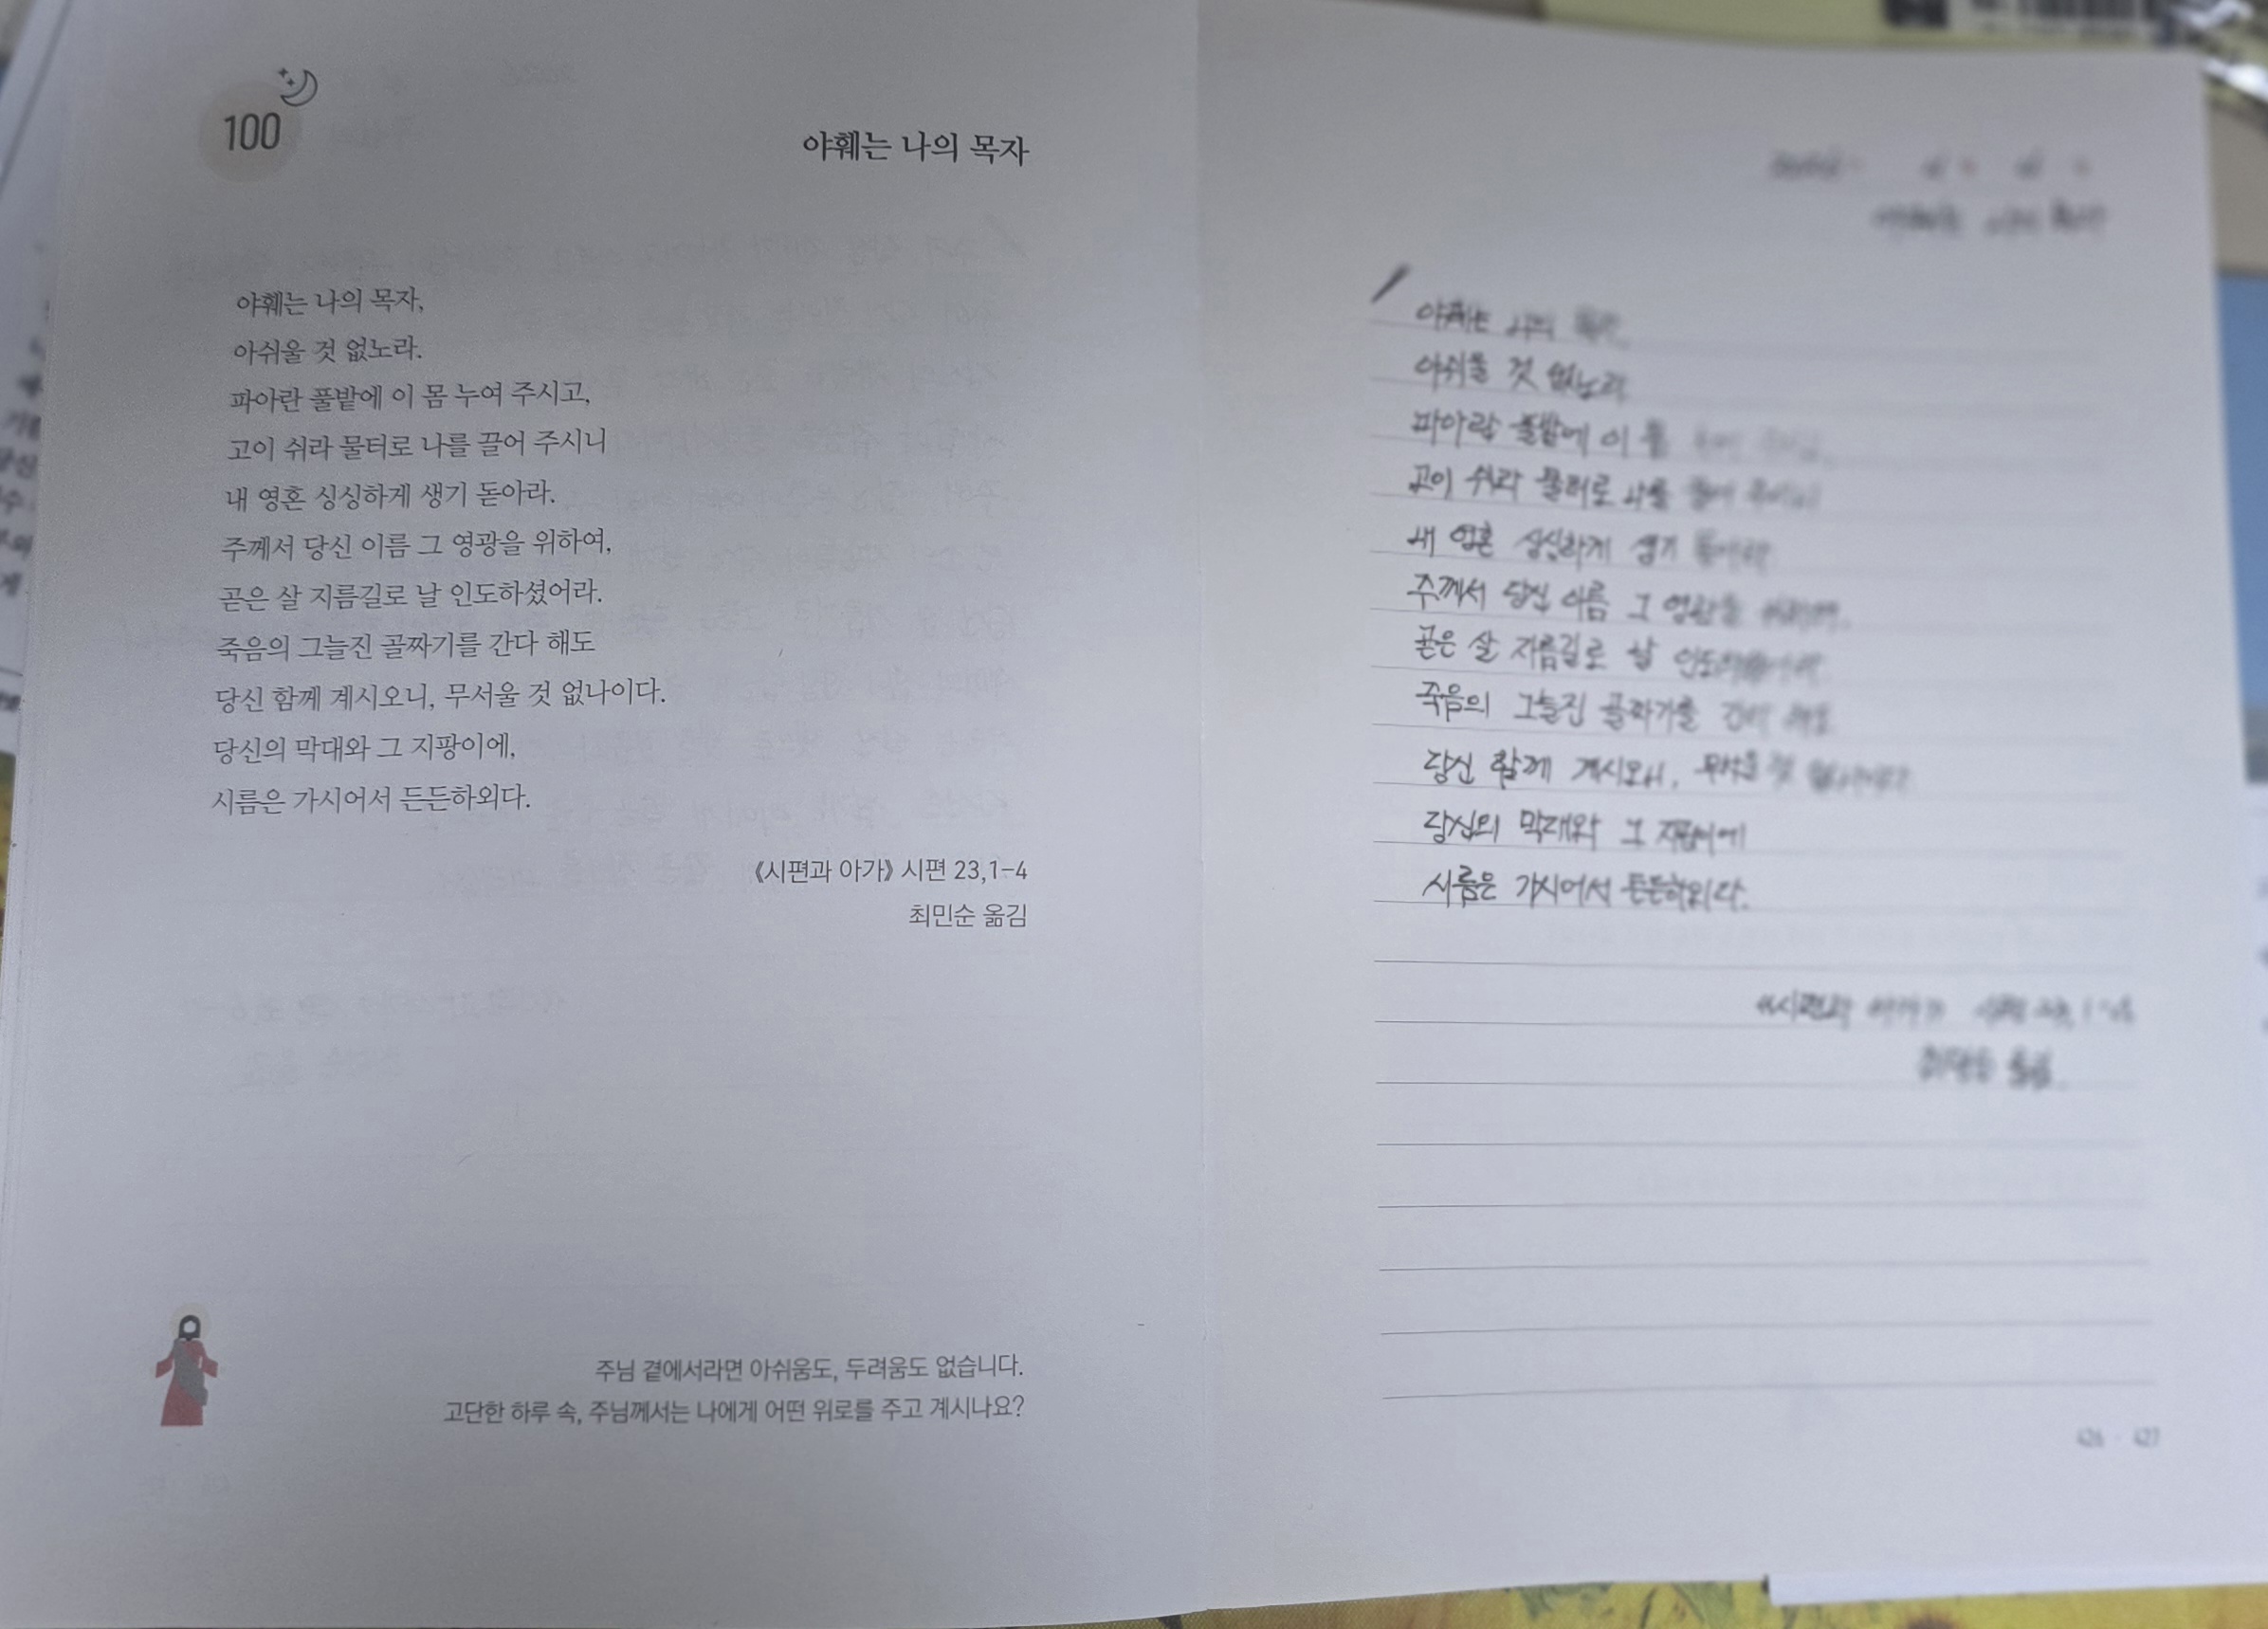 100
야훼는 나의 목자
야훼는 나의 목자,
아쉬울 것 없노라.
파아란 풀밭에 이 몸 누여 주시고,
고이 쉬라 물터로 나를 끌어 주시니
내 영혼 싱싱하게 생기 돋아라.
주께서 당신 이름 그 영광을 위하여,
곧은 살 지름길로 날 인도하셨어라.
죽음의 그늘진 골짜기를 간다 해도
당신 함께 계시오니, 무서울 것 없나이다.
당신의 막대와 그 지팡이에,
시름은 가시어서 든든하외다.
《시편과 아가》 시편 23,1-4
최민순 옮김
주님 곁에서라면 아쉬움도, 두려움도 없습니다.
고단한 하루 속, 주님께서는 나에게 어떤 위로를 주고 계시나요?
야훼는 나의
아쉬울 것 없노라
파아란 풀밭에 이 몸
고이 쉬라 물터로 나를
내 영혼 싱싱하게 생기
주께서 당신 이름 그 영광을
곧은 살 지름길로 날
죽음의 그늘진 골짜기를
당신 함께 계시오니,
당신의 막대와 그 지팡이에
시름은 가시어서 든든하외다.
《시편과